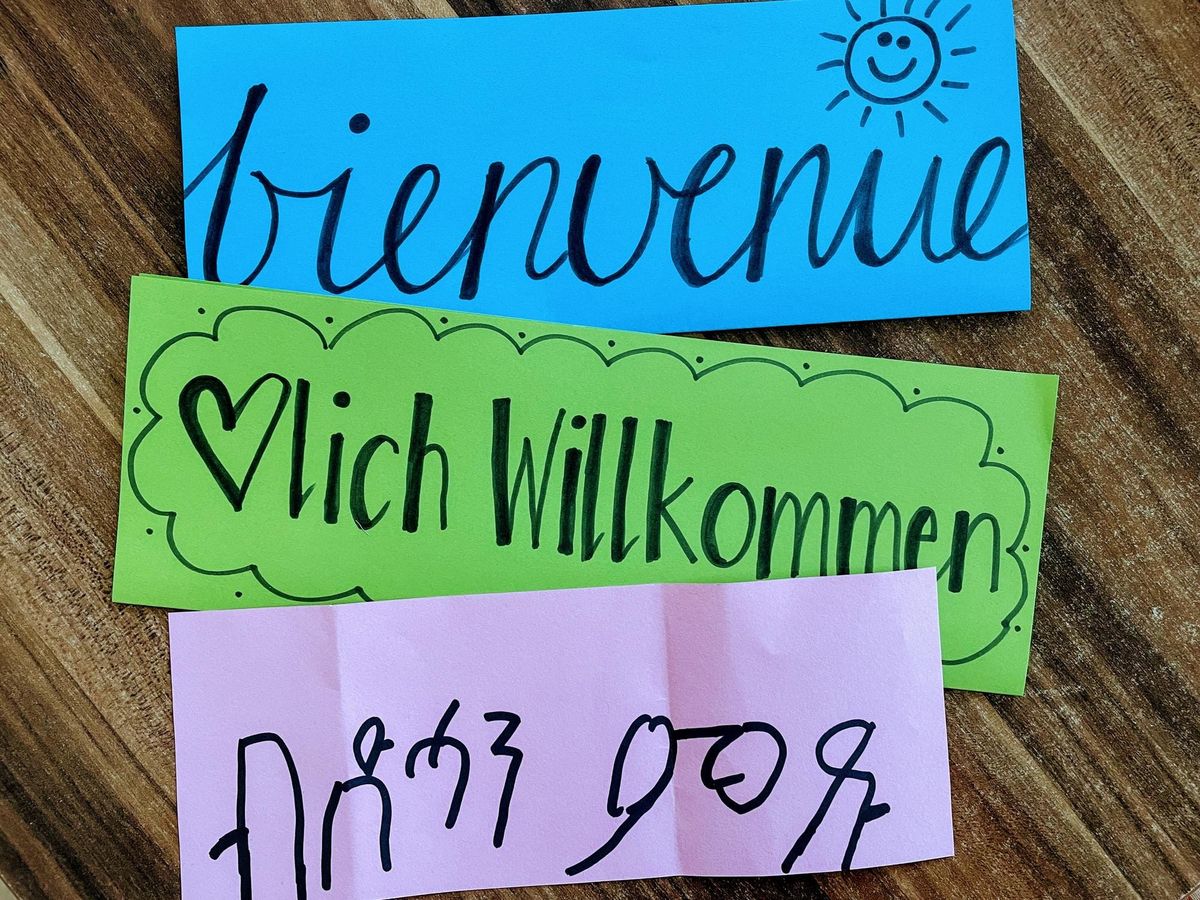 bienvenue
♡lich Willkommen
ብደሓን ምጹ